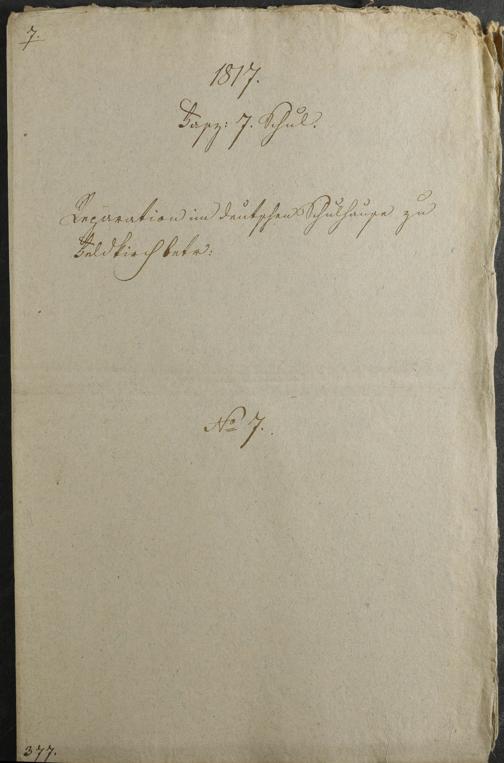 7.
1817.
Fasz: 7. Schul.
Reparation im deutschen Schulhause zu
Feldkirch betr:
No 7.
377.